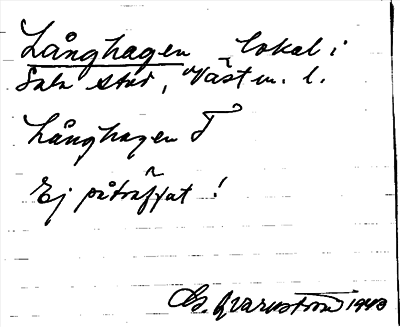 Långhagen lokal i
Sala stad, Västm. l.
Långhagen T
Ej påträffat!
G. Qvarnström 1943